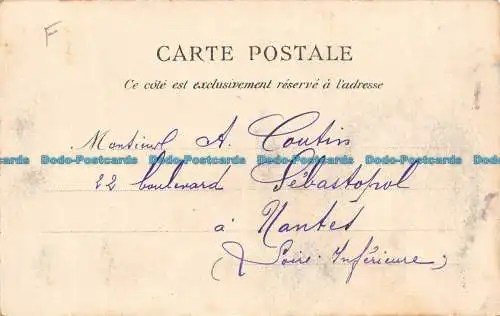 F
CARTE POSTALE
Ce côté est exclusivement réservé à l'adresse
Monsieur A. Coutin
Dodo-Postcards Dodo-Postcards Dodo-Postcards Dodo-Postcards
22 boulevard Sébastopol
à Nantes
Dodo-Postcards Dodo-Postcards Dodo-Postcards Dodo-Postcards
(Loire-Inférieure)